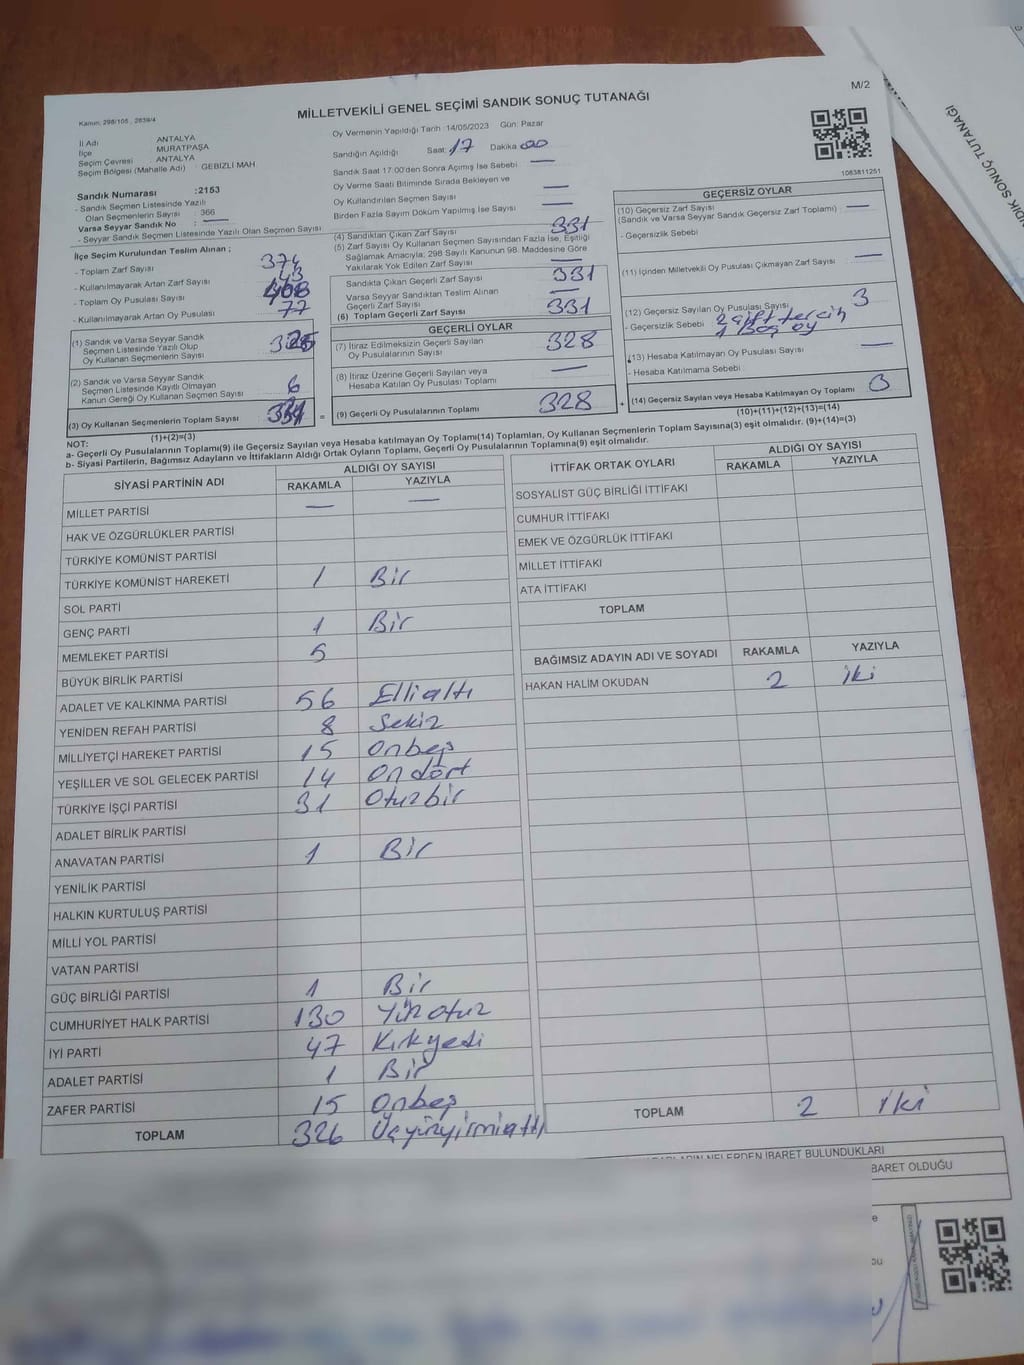 M/2
MİLLETVEKİLİ GENEL SEÇİMİ SANDIK SONUÇ TUTANAĞI
Kanun: 298/105 , 2839/4
İl Adı ANTALYA
İlçe MURATPAŞA
Seçim Çevresi : ANTALYA
Seçim Bölgesi (Mahalle Adı) : GEBIZLI MAH
Sandık Numarası :2153
- Sandık Seçmen Listesinde Yazılı
Olan Seçmenlerin Sayısı : 366
Varsa Seyyar Sandık No :
- Seyyar Sandık Seçmen Listesinde Yazılı Olan Seçmen Sayısı
İlçe Seçim Kurulundan Teslim Alınan ;
- Toplam Zarf Sayısı 374
- Kullanılmayarak Artan Zarf Sayısı 43
- Toplam Oy Pusulası Sayısı
- Kullanılmayarak Artan Oy Pusulası 77
(1) Sandık ve Varsa Seyyar Sandık
Seçmen Listesinde Yazılı Olup
Oy Kullanan Seçmenlerin Sayısı
(2) Sandık ve Varsa Seyyar Sandık
Seçmen Listesinde Kayıtlı Olmayan
Kanun Gereği Oy Kullanan Seçmen Sayısı 6
(3) Oy Kullanan Seçmenlerin Toplam Sayısı =
(1)+(2)=(3)
Oy Vermenin Yapıldığı Tarih :14/05/2023 Gün: Pazar
Sandığın Açıldığı Saat: 17 Dakika 00
Sandık Saat 17:00'den Sonra Açımış İse Sebebi —
Oy Verme Saati Bitiminde Sırada Bekleyen ve
Oy Kullandırılan Seçmen Sayısı —
Birden Fazla Sayım Döküm Yapılmış İse Sayısı —
(4) Sandıktan Çıkan Zarf Sayısı 331
(5) Zarf Sayısı Oy Kullanan Seçmen Sayısından Fazla İse, Eşitliği
Sağlamak Amacıyla; 298 Sayılı Kanunun 98. Maddesine Göre
Yakılarak Yok Edilen Zarf Sayısı —
Sandıkta Çıkan Geçerli Zarf Sayısı 331
Varsa Seyyar Sandıktan Teslim Alınan
Geçerli Zarf Sayısı —
(6) Toplam Geçerli Zarf Sayısı 331
GEÇERLİ OYLAR
(7) İtiraz Edilmeksizin Geçerli Sayılan
Oy Pusulalarının Sayısı 328
(8) İtiraz Üzerine Geçerli Sayılan veya
Hesaba Katılan Oy Pusulası Toplamı —
(9) Geçerli Oy Pusulalarının Toplamı 328 +
1083811251
GEÇERSİZ OYLAR
(10) Geçersiz Zarf Sayısı —
(Sandık ve Varsa Seyyar Sandık Geçersiz Zarf Toplamı)
- Geçersizlik Sebebi
(11) İçinden Milletvekili Oy Pusulası Çıkmayan Zarf Sayısı —
(12) Geçersiz Sayılan Oy Pusulası Sayısı 3
- Geçersizlik Sebebi 2 çift tercih
1 Boş oy
(13) Hesaba Katılmayan Oy Pusulası Sayısı —
- Hesaba Katılmama Sebebi
(14) Geçersiz Sayılan veya Hesaba Katılmayan Oy Toplamı 3
(10)+(11)+(12)+(13)=(14)
NOT:
a- Geçerli Oy Pusulalarının Toplamı(9) ile Geçersiz Sayılan veya Hesaba katılmayan Oy Toplamı(14) Toplamları, Oy Kullanan Seçmenlerin Toplam Sayısına(3) eşit olmalıdır. (9)+(14)=(3)
b- Siyasi Partilerin, Bağımsız Adayların ve İttifakların Aldığı Ortak Oyların Toplamı, Geçerli Oy Pusulalarının Toplamına(9) eşit olmalıdır.
SİYASİ PARTİNİN ADI ALDIĞI OY SAYISI
RAKAMLA YAZIYLA
MİLLET PARTİSİ — —
HAK VE ÖZGÜRLÜKLER PARTİSİ
TÜRKİYE KOMÜNİST PARTİSİ
TÜRKİYE KOMÜNİST HAREKETİ 1 Bir
SOL PARTİ
GENÇ PARTİ 1 Bir
MEMLEKET PARTİSİ 5
BÜYÜK BİRLİK PARTİSİ
ADALET VE KALKINMA PARTİSİ 56 Ellialtı
YENİDEN REFAH PARTİSİ 8 Sekiz
MİLLİYETÇİ HAREKET PARTİSİ 15 Onbeş
YEŞİLLER VE SOL GELECEK PARTİSİ 14 Ondört
TÜRKİYE İŞÇİ PARTİSİ 31 Otuzbir
ADALET BİRLİK PARTİSİ
ANAVATAN PARTİSİ 1 Bir
YENİLİK PARTİSİ
HALKIN KURTULUŞ PARTİSİ
MİLLİ YOL PARTİSİ
VATAN PARTİSİ
GÜÇ BİRLİĞİ PARTİSİ 1 Bir
CUMHURİYET HALK PARTİSİ 130 Yüz otuz
İYİ PARTİ 47 Kırkyedi
ADALET PARTİSİ 1 Bir
ZAFER PARTİSİ 15 Onbeş
TOPLAM 326 Üçyüzyirmialtı
İTTİFAK ORTAK OYLARI ALDIĞI OY SAYISI
RAKAMLA YAZIYLA
SOSYALİST GÜÇ BİRLİĞİ İTTİFAKI
CUMHUR İTTİFAKI
EMEK VE ÖZGÜRLÜK İTTİFAKI
MİLLET İTTİFAKI
ATA İTTİFAKI
TOPLAM
BAĞIMSIZ ADAYIN ADI VE SOYADI RAKAMLA YAZIYLA
HAKAN HALİM OKUDAN 2 iki
TOPLAM 2 iki
NELERDEN İBARET BULUNDUKLARI
BARET OLDUĞU
NDIK SONUÇ TUTANAĞI